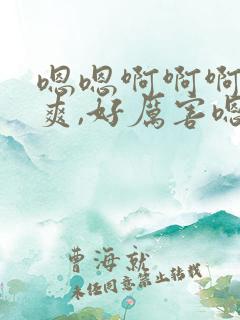 嗯嗯啊啊啊
爽,好厲害嗯
曹海就
未经同意禁止转载